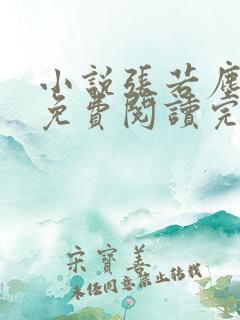 小說張若塵
免費閱讀完
宋寶善
未經同意禁止轉載